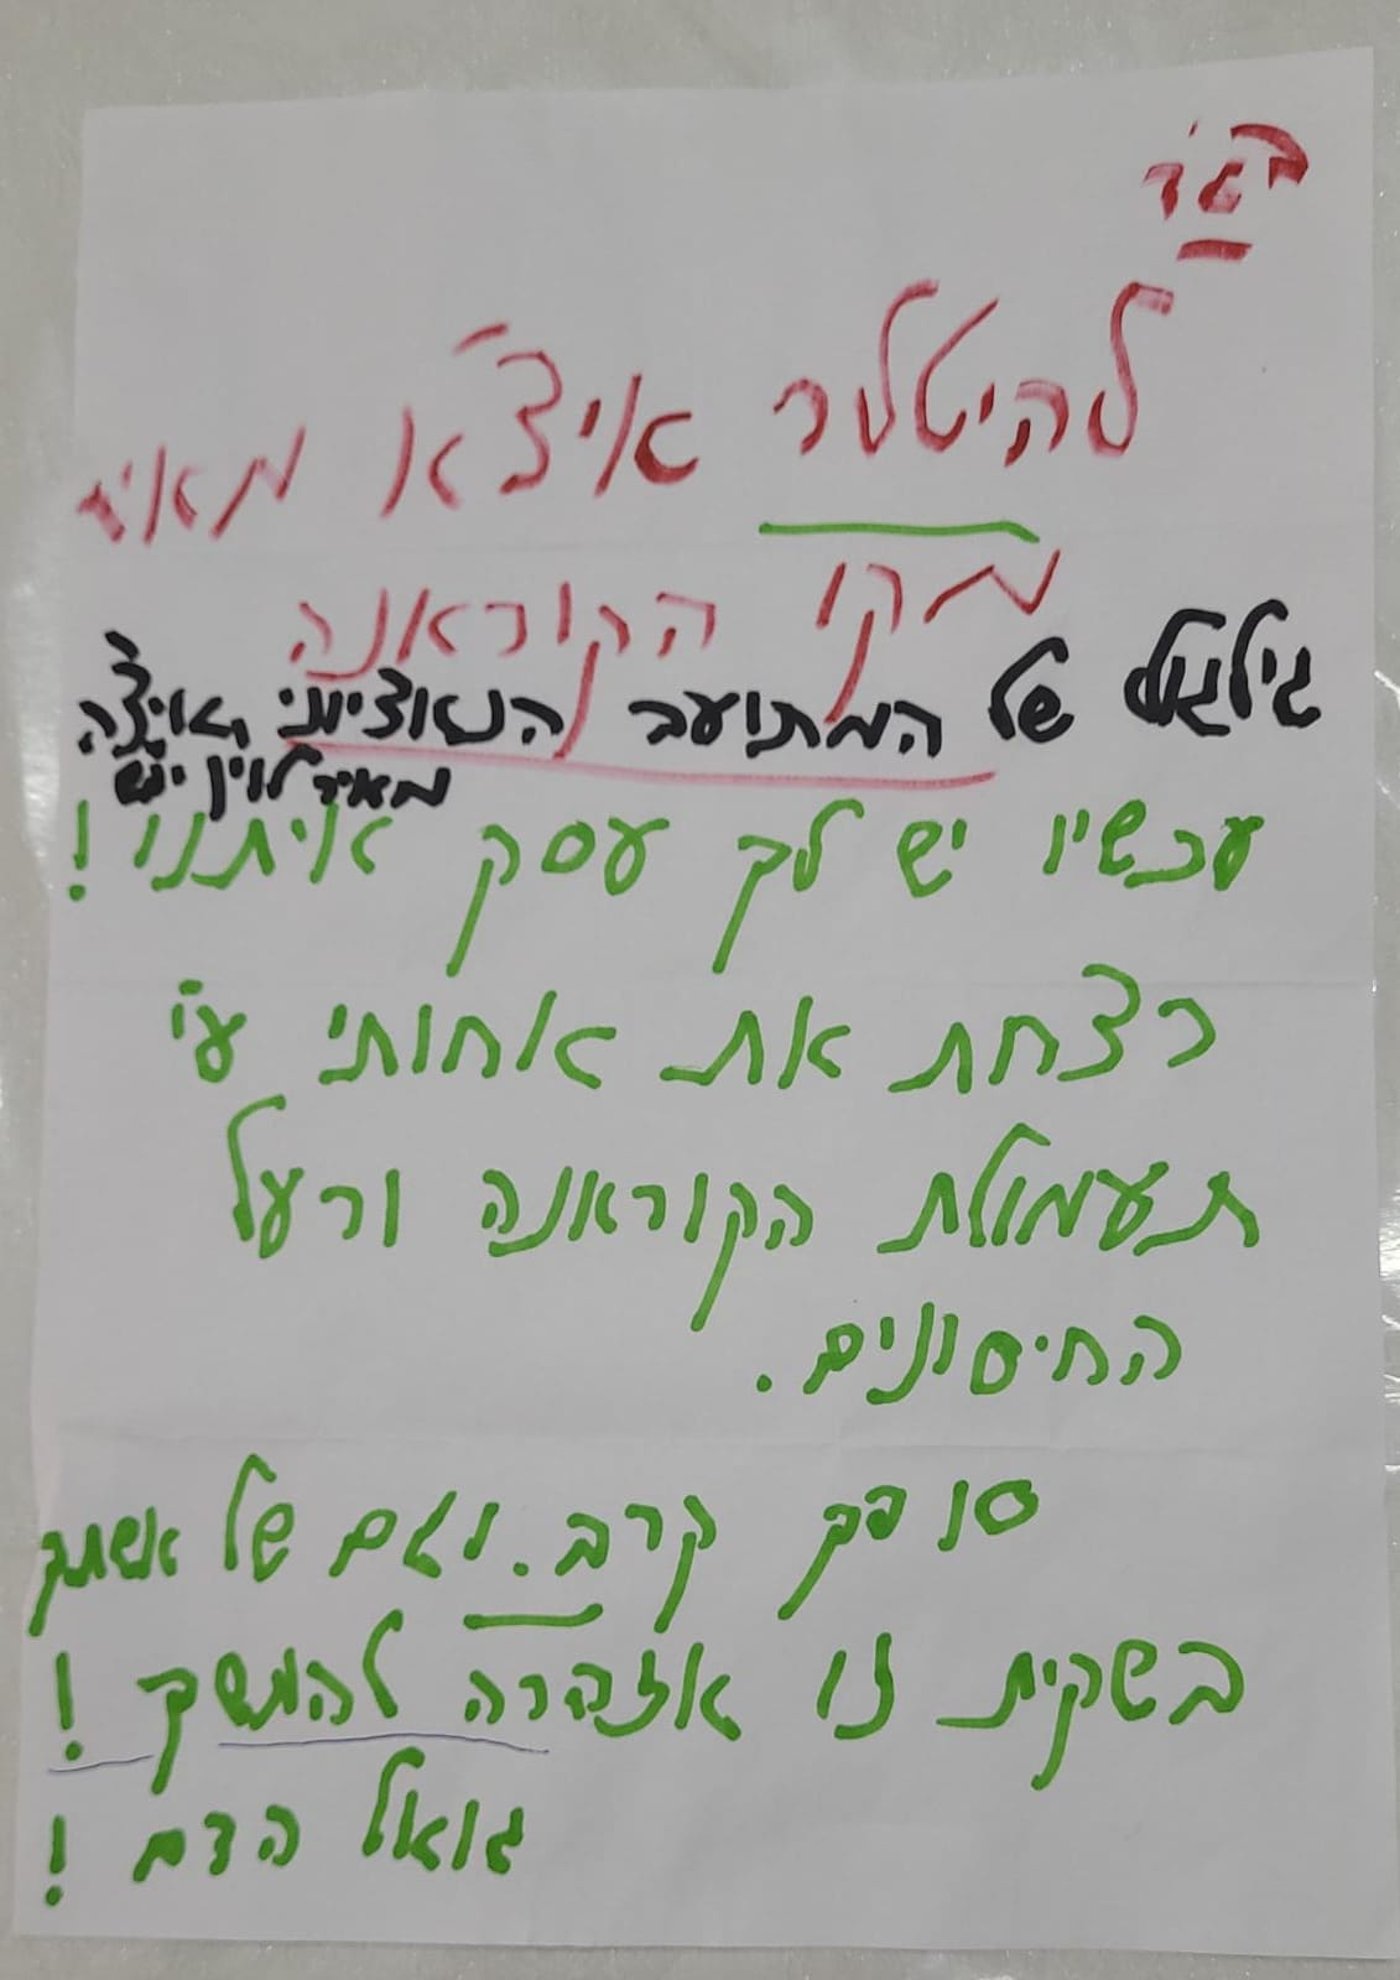 בגד
להיטלר איצ'א מאיר
מקו הקוראנה
גילגול של המתועב הנאוציוני איצ'ה
מאיר לוין יש
עכשיו יש לך עסק איתנו!
רצחת את אחותי ע"י
תעמולת הקוראנה ורעל
החיסונים.
סופך קרב. וגם של אשתך
בשקית זו אזהרה להמשך!
גואל הדם!